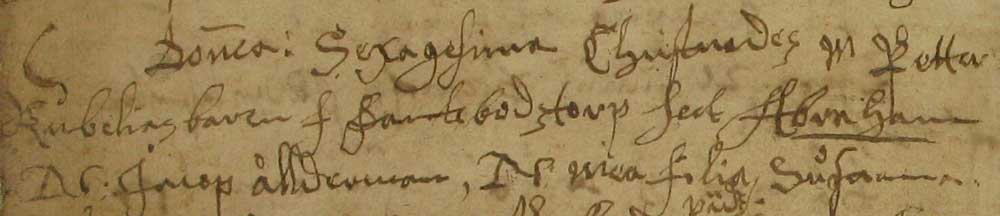 Domca: Sexagesima Christnades M Petter
Rubelias barn f Santebodztorp heet Abraham
N: Jacop ålderman, N mea filia, Susanna.